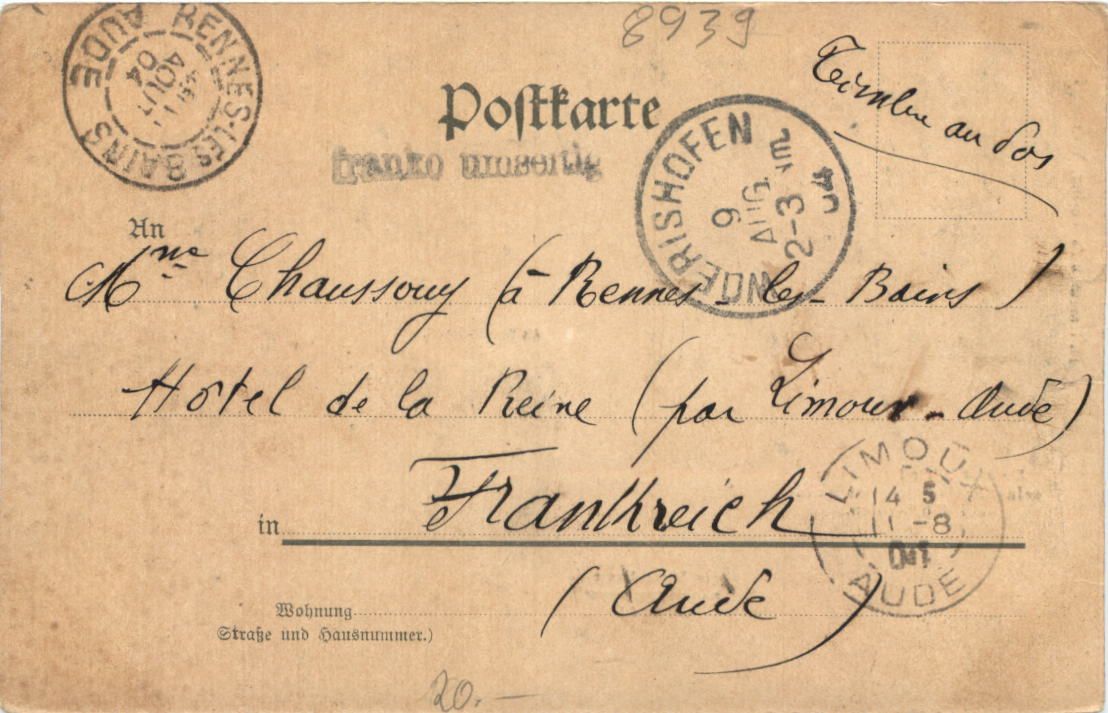 8939
RENNES-LES-BAINS
AOUT
04
AUDE
Timbre au dos
Postkarte
franko umseitig
NDERISHOFEN
9
AUG.
2-3 NM.
04
An
Mme Chaussouy (à Rennes-les-Bains)
Hôtel de la Reine (par Limoux-Aude)
in Frankreich
(Aude)
LIMOUX
14 5
11-8
04
AUDE
Wohnung
Straße und Hausnummer.)
20.-